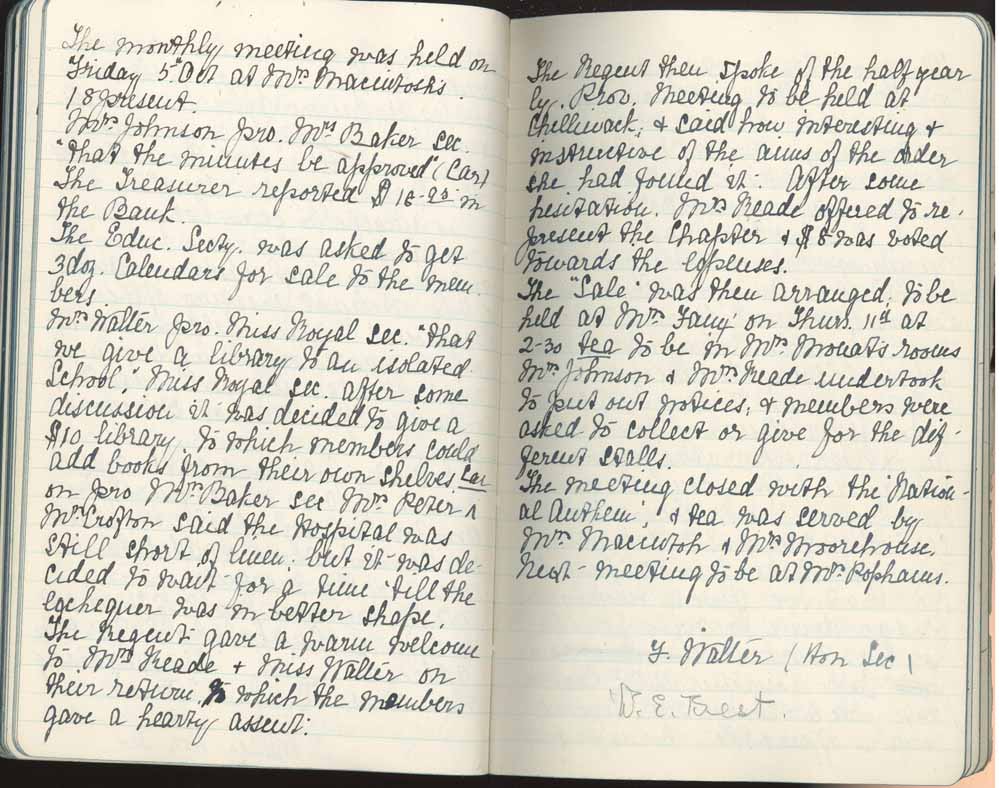 The monthly meeting was held on
Friday 5th Oct at Mrs Macintoshs.
18 present.
Mrs Johnson pro. Mrs Baker sec.
"that the minutes be approved" (Car)
The Treasurer reported $ in
the Bank.
The Educ. Secty. was asked to get
3 doz. Calendars for sale to the mem-
bers.
Mrs Walter pro. Miss Royal sec. "that
we give a library to an isolated
School," Miss Royal sec. after some
discussion it was decided to give a
$10 library, to which members could
add books from their own shelves. Car
on pro Mrs Baker sec Mrs Peter ^
Mrs Crofton said the Hospital was
still short of linen. but it was de-
cided to wait for a time 'till the
exchequer was in better shape.
The Regent gave a warm welcome
to Mrs Reade + Miss Walter on
their return, to which the members
gave a hearty assent.
The Regent then spoke of the half year
ly. Prov. Meeting to be held at
Chilliwack, & said how interesting &
instructive of the aims of the order
she had found it. After some
hesitation. Mrs Reade offered to re-
present the Chapter & $8 was voted
towards the expenses.
The "Sale" was then arranged, to be
held at Mrs on Thurs. 11th at
2-30 tea to be in Mrs Mouat's rooms
Mrs Johnson & Mrs Reade undertook
to put out notices, & members were
asked to collect or give for the dif-
ferent stalls.
The meeting closed with the 'Nation-
al Anthem', & tea was served by
Mrs Macintosh & Mrs Moorehouse.
Next meeting to be at Mrs Pophams.
F. Walter (Hon Sec)
W. E. Best.